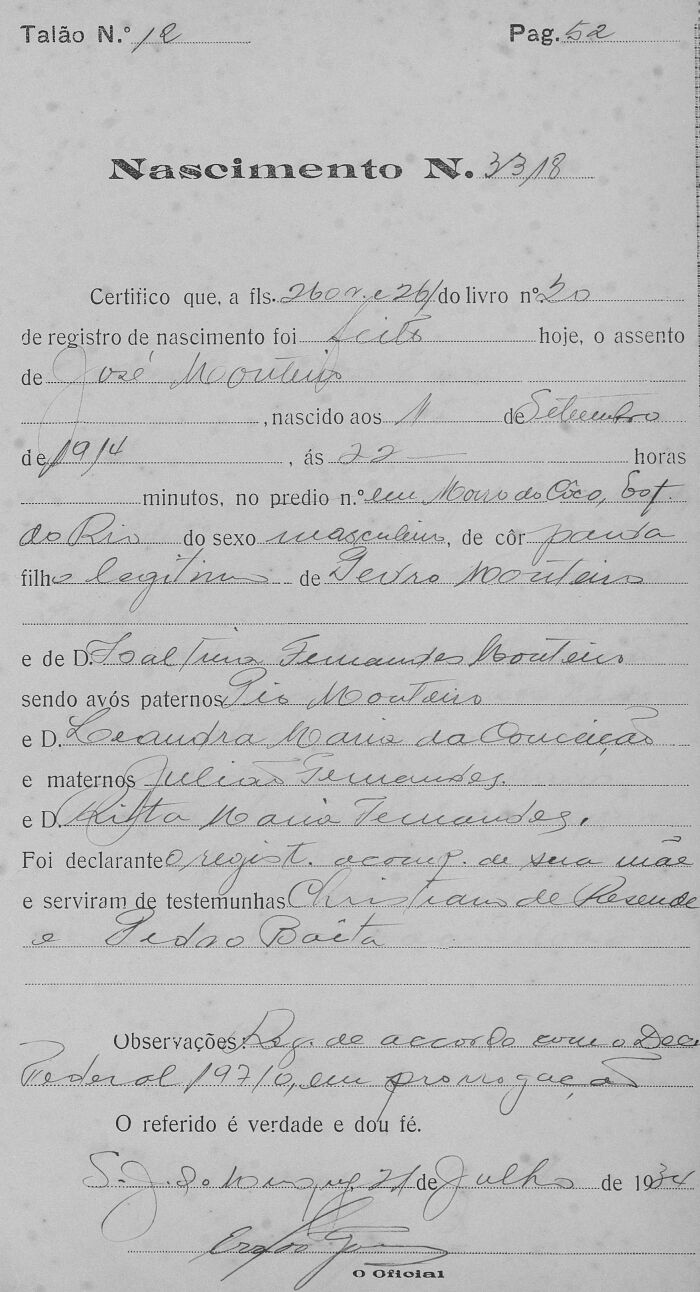 Talão N.º 12 Pag. 52
Nascimento N. 3318
Certifico que, a fls. 260 v. e 261 do livro nº 20
de registro de nascimento foi feito hoje, o assento
de José Monteiro
, nascido aos 11 de Setembro
de 1914 , ás 22 horas
minutos, no predio n.º em Morro do Côco, Est.
do Rio do sexo masculino, de côr parda
filho legitimo de Pedro Monteiro
e de D. Isaltina Fernandes Monteiro
sendo avós paternos Pio Monteiro
e D. Leandra Maria da Conceição
e maternos Julião Fernandes.
e D. Maria Fernandes.
Foi declarante o regist. acomp. de sua mãe
e serviram de testemunhas Christiano de Resende
e Pedro Baêta
Observações: Reg. de accordo com o Dec.
Federal 19710, em prorrogação
O referido é verdade e dou fé.
S. J. do 21 de Julho de 1934
O Oficial